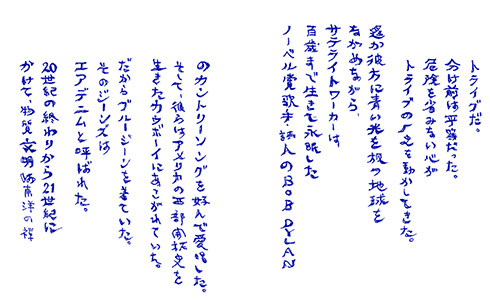 トライブだ。
分け前は平等だった。
危険を省みない心が
トライブの歴史を動かしてきた。
遙か彼方に青い光を放つ地球を
ながめながら、
サテライトワーカーは
百歳まで生きて永眠した
ノーベル賞歌手・詩人のBOB DYLAN
のカントリーソングを好んで愛唱した。
そして、彼らはアメリカの西部開拓史を
生きたカウボーイにあこがれていた。
だからブルージーンを着ていた。
そのジーンズは
エアデニムと呼ばれた。
20世紀の終わりから21世紀に
かけて、物質文明は東洋の禅